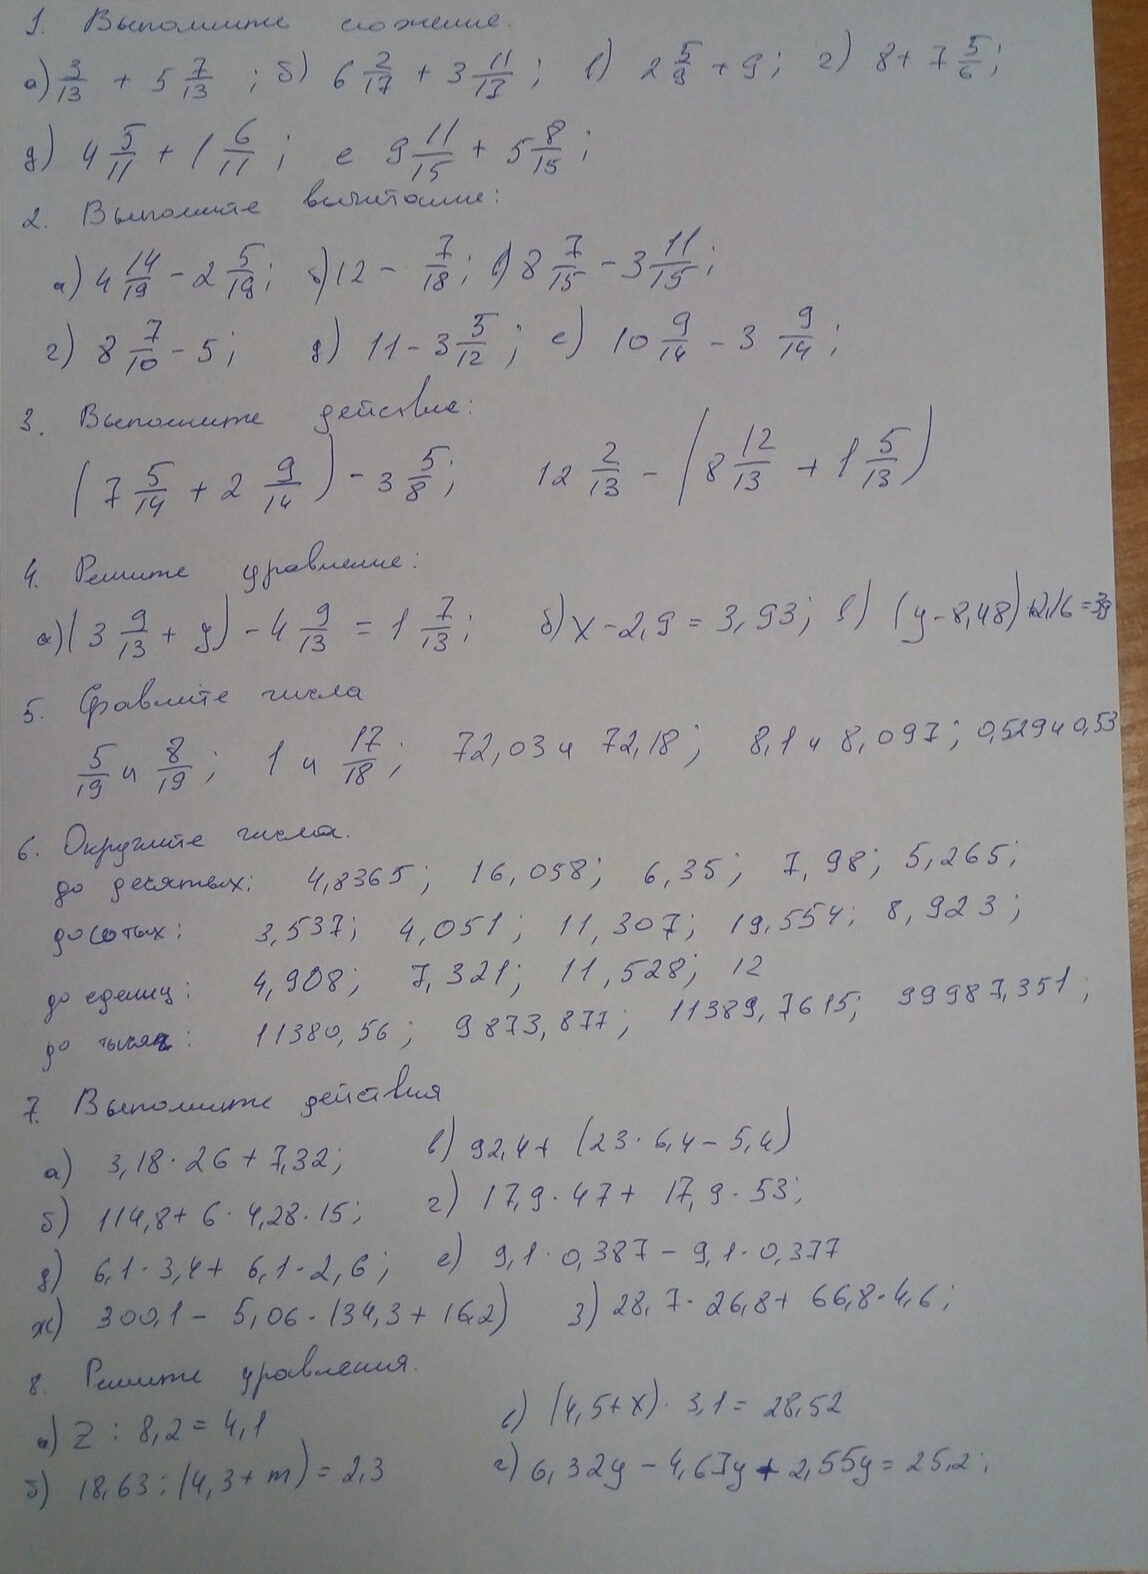 1. Выполните сложение.
а) 3/13 + 5 7/13 ; б) 6 2/17 + 3 11/17 ; в) 2 5/9 + 9 ; г) 8 + 7 5/6 ;
д) 4 5/11 + 1 6/11 ; е 9 11/15 + 5 8/15 ;
2. Выполните вычитание:
а) 4 14/19 - 2 5/19 ; б) 12 - 7/18 ; в) 8 7/15 - 3 11/15 ;
г) 8 7/10 - 5 ; д) 11 - 3 5/12 ; е) 10 9/14 - 3 9/14 ;
3. Выполните действие:
(7 5/14 + 2 9/14) - 3 5/8 ; 12 2/13 - (8 12/13 + 1 5/13)
4. Решите уравнение:
а) (3 9/13 + y) - 4 9/13 = 1 7/13 ; б) x - 2,9 = 3,93 ; в) (y - 8,48)
5. Сравните числа
5/19 и 8/19 ; 1 и 17/18 ; 72,03 и 72,18 ; 8,1 и 8,097 ; 0,529 и 0,53
6. Округлите числа.
до десятых: 4,8365 ; 16,058 ; 6,35 ; 7,98 ; 5,265 ;
до сотых: 3,537 ; 4,051 ; 11,307 ; 19,554 ; 8,923 ;
до единиц: 4,908 ; 7,321 ; 11,528 ; 12
до тысяч: 11380,56 ; 9873,877 ; 11389,7615 ; 99987,351 ;
7. Выполните действия
а) 3,18 · 26 + 7,32 ; в) 92,4 + (23 · 6,4 - 5,4)
б) 114,8 + 6 · 4,28 · 15 ; г) 17,9 · 47 + 17,9 · 53 ;
д) 6,1 · 3,4 + 6,1 · 2,6 ; е) 9,1 · 0,387 - 9,1 · 0,377
ж) 300,1 - 5,06 · (34,3 + 16,2) з) 28,7 · 26,8 + 66,8 · 4,6 ;
8. Решите уравнения.
а) z : 8,2 = 4,1 в) (4,5 + x) · 3,1 = 28,52
б) 18,63 : (4,3 + m) = 2,3 г) 6,32y - 4,67y + 2,55y = 25,2 ;